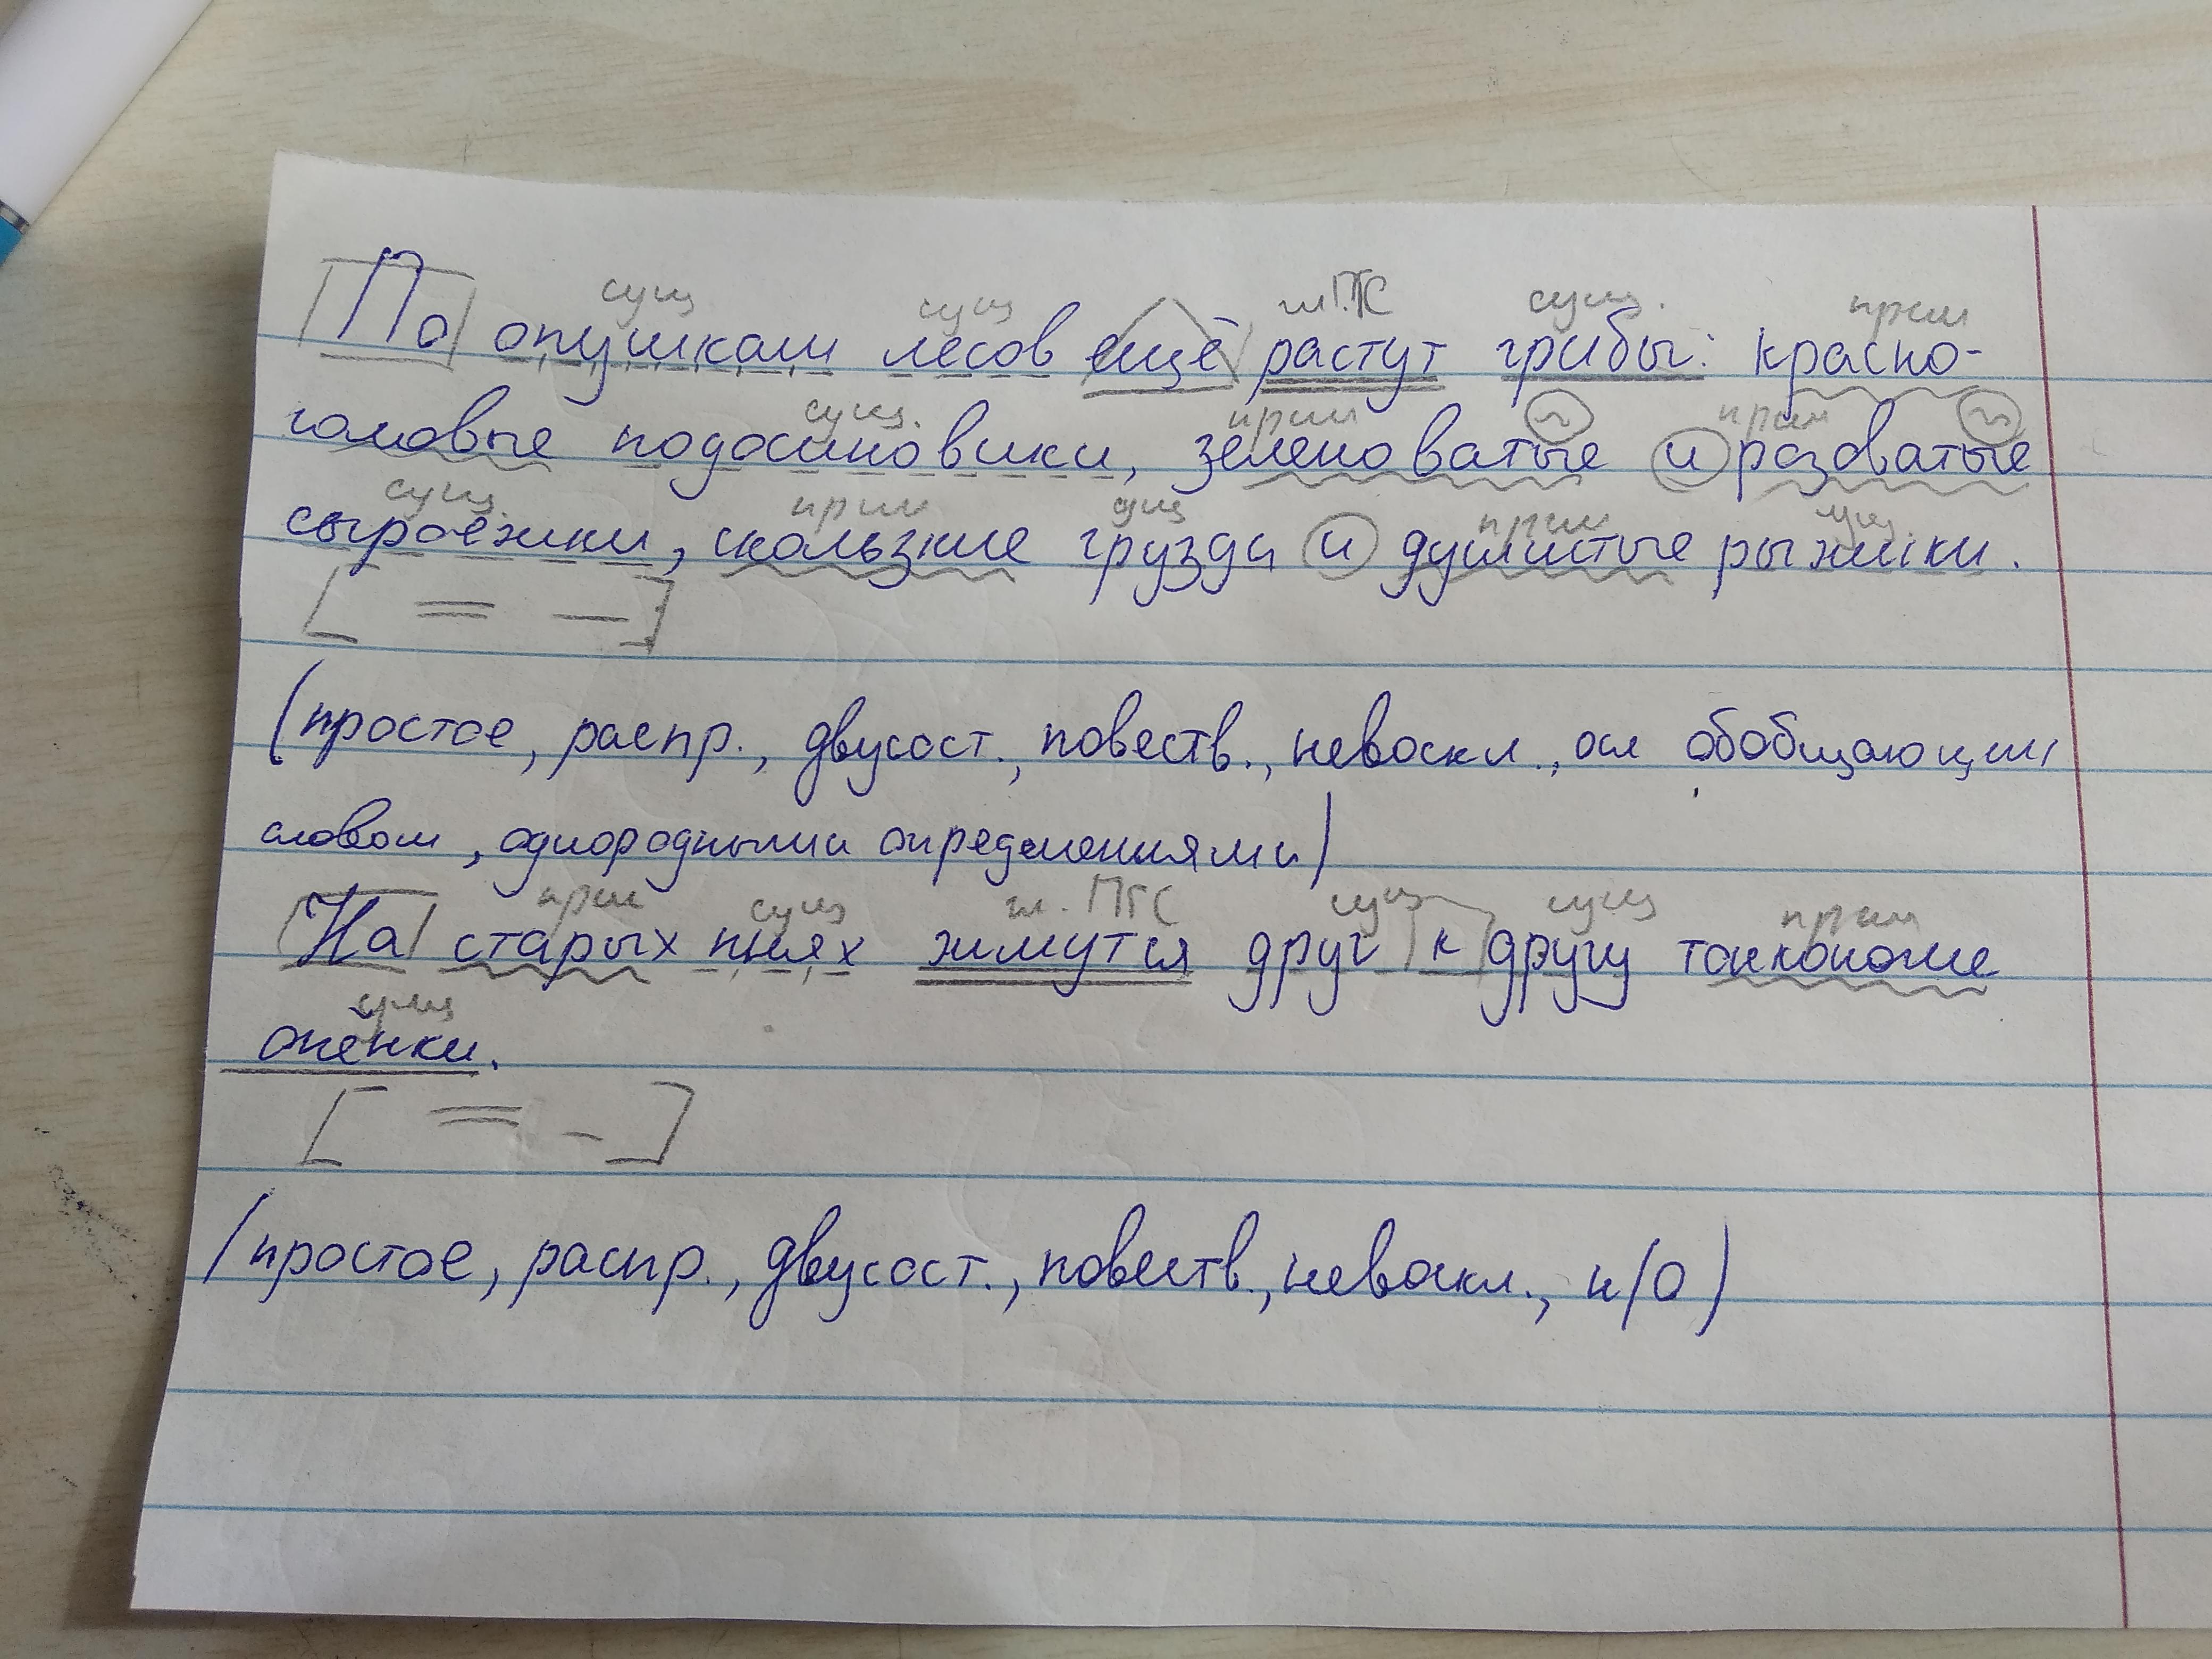 сущ сущ гл. ПГС сущ. прил
По опушкам лесов ещё растут грибы: красно-
сущ. прил прил
головые подосиновики, зеленоватые и розоватые
сущ. прил сущ прил сущ.
сыроежки, скользкие грузди и душистые рыжики.
[ = – ]
(простое, распр., двусост., повеств., невоскл., осл обобщающим
словом, однородными определениями)
прил сущ гл. ПГС сущ сущ прил
На старых пнях жмутся друг к другу тонконогие
сущ
опёнки.
[ = – ]
(простое, распр., двусост., повеств., невоскл., н/о)